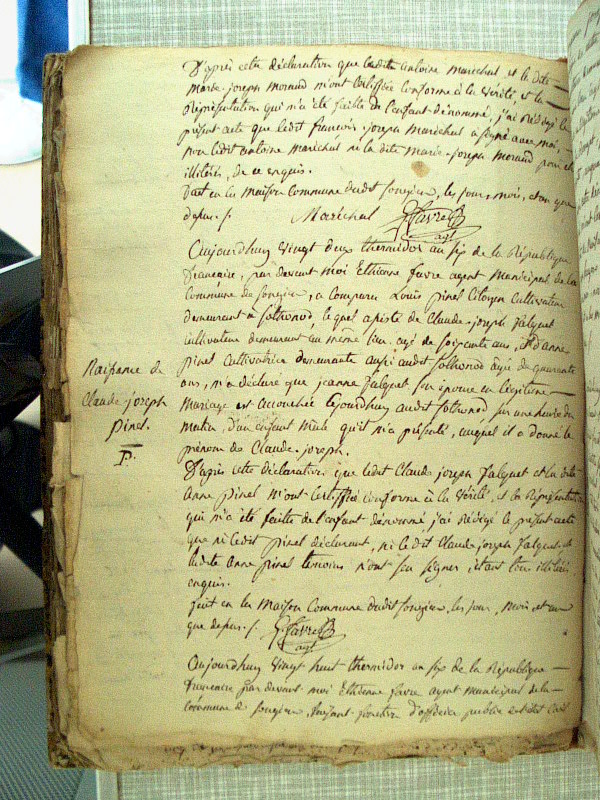 D'après cette déclaration que ledit antoine marechal et la dite
Marie joseph moraud m'ont certifiée conforme à la vérité, et la
Représentation qui m'a été faite de l'enfant dénommé, j'ai rédigé le
présent acte que ledit francois joseph maréchal a signé avec moi,
non ledit antoine maréchal ni la dite marie joseph moraud pour être
illitérés, de ce enquis.
fait en la maison Commune dudit songieu, les jour, mois, et an que
depus. /.
Maréchal
E. favre
agt
Aujourdhuy vingt deux thermidor an six de la République
francaise, par devant moi Etienne favre agent municipal de la
Commune de songieu, a comparu Louis pinel Citoyen Cultivateur
demeurant à sothonod, lequel assisté de Claude joseph falquet
cultivateur demeurant au même lieu, agé de soixante ans, et d'anne
pinel cultivatrice demeurante aussi audit sothonod âgée de quarante
ans, m'a déclaré que jeanne falquet son épouse en légitime
Mariage est accouchée Cejourdhuy audit sothonod sur une heure du
Matin, d'un enfant Male qu'il m'a présenté, auquel il a donné le
prénom de Claude joseph.
Naissance de
Claude joseph
pinel.
P.
D'après cette déclaration que ledit Claude joseph falquet et la dite
anne pinel m'ont certifiée conforme à la vérité, et la Représentation
qui m'a été faite de l'enfant dénommé j'ai rédigé le présent acte
que ni ledit pinel déclarant, ni le dit Claude joseph falquet et
ladite anne pinel temoins n'ont su signer, étant tous illitérés
enquis.
fait en la Maison Commune dudit songieu, les jour, mois et an
que depus. /.
E. favre
agt
Aujourdhuy vingt huit thermidor an six de la République
francaise par devant moi Etienne favre agent municipal de la
commune de songieu, faisant fonction d'officier public